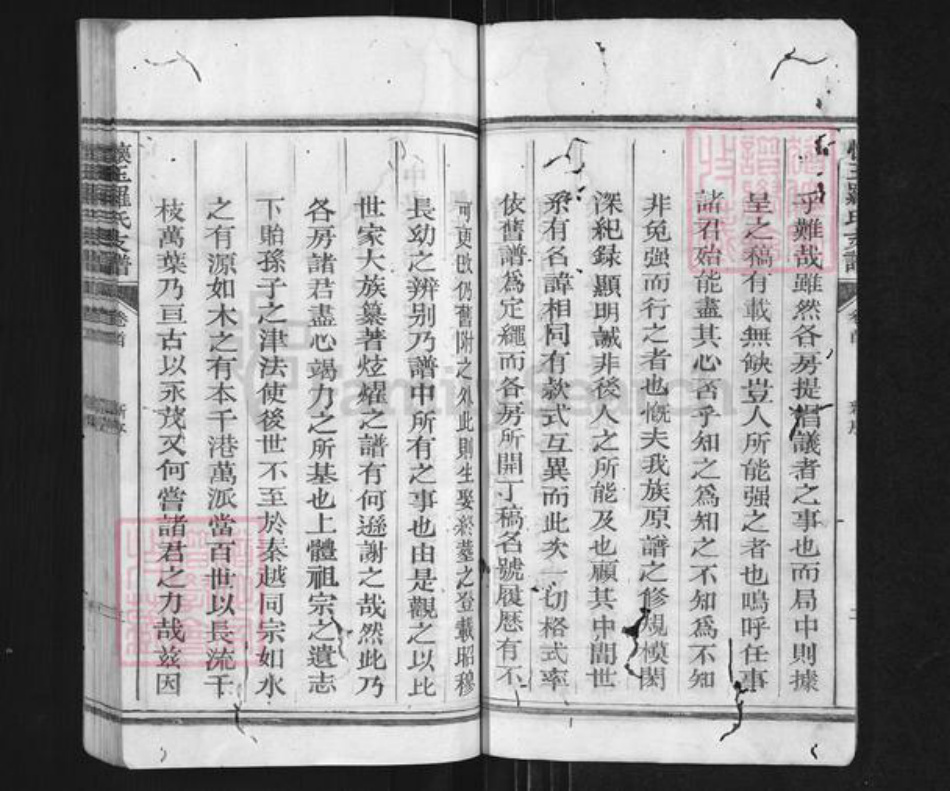 乎難哉雖然各房提倡議者之事也而局中則據
呈之稿有載無缺豈人所能强之者也鳴呼任事
諸君殆能盡其心否乎知之爲知之不知爲不知
非免强而行之者也慨夫我族原譜之修規模閎
深紀録顯明誠非後人之所能及也顧其中間世
系有名諱相同有款式互異而此次一切格式率
依舊譜爲定繩而各房所開丁稿名號履歷有不
可更改仍舊附之外此則生娶終墓之登載昭穆
長幼之辨别乃譜中所有之事也由是觀之以比
世家大族纂著炫耀之譜有何遜謝之哉然此乃
各房諸君盡心竭力之所基也上體祖宗之遺志
下貽孫子之津法使後世不至於秦越同宗如水
之有源如木之有本千港萬派當百世以長流千
枝萬葉乃亘古以永茂又何嘗諸君之力哉兹因
羅氏支譜
卷首